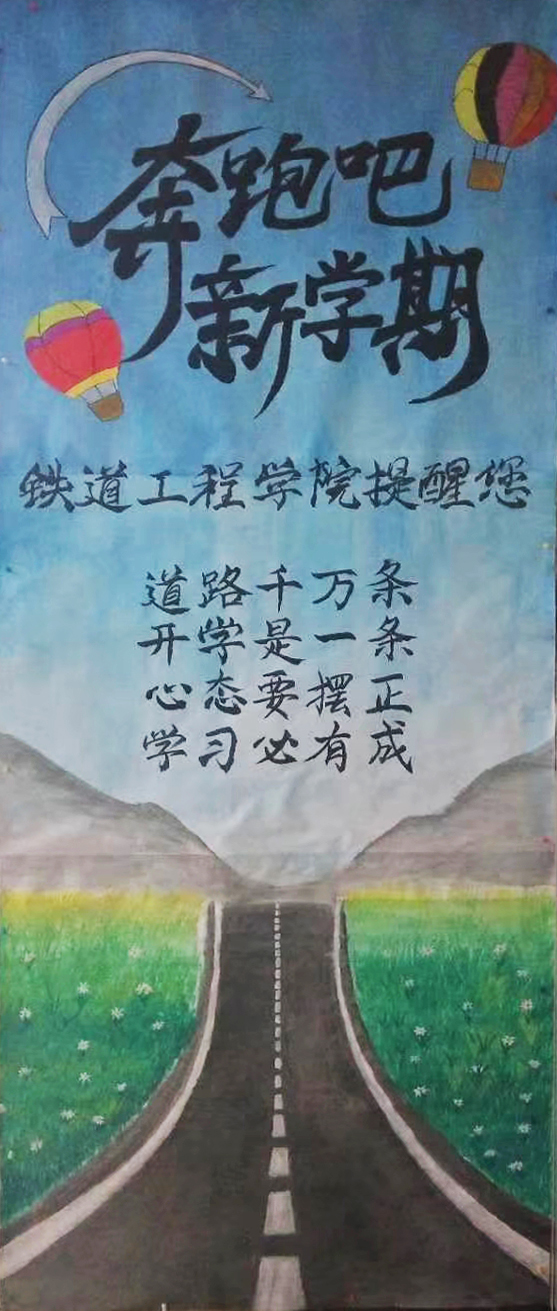 奔跑吧
新学期
铁道工程学院提醒您
道路千万条
开学是一条
心态要摆正
学习必有成